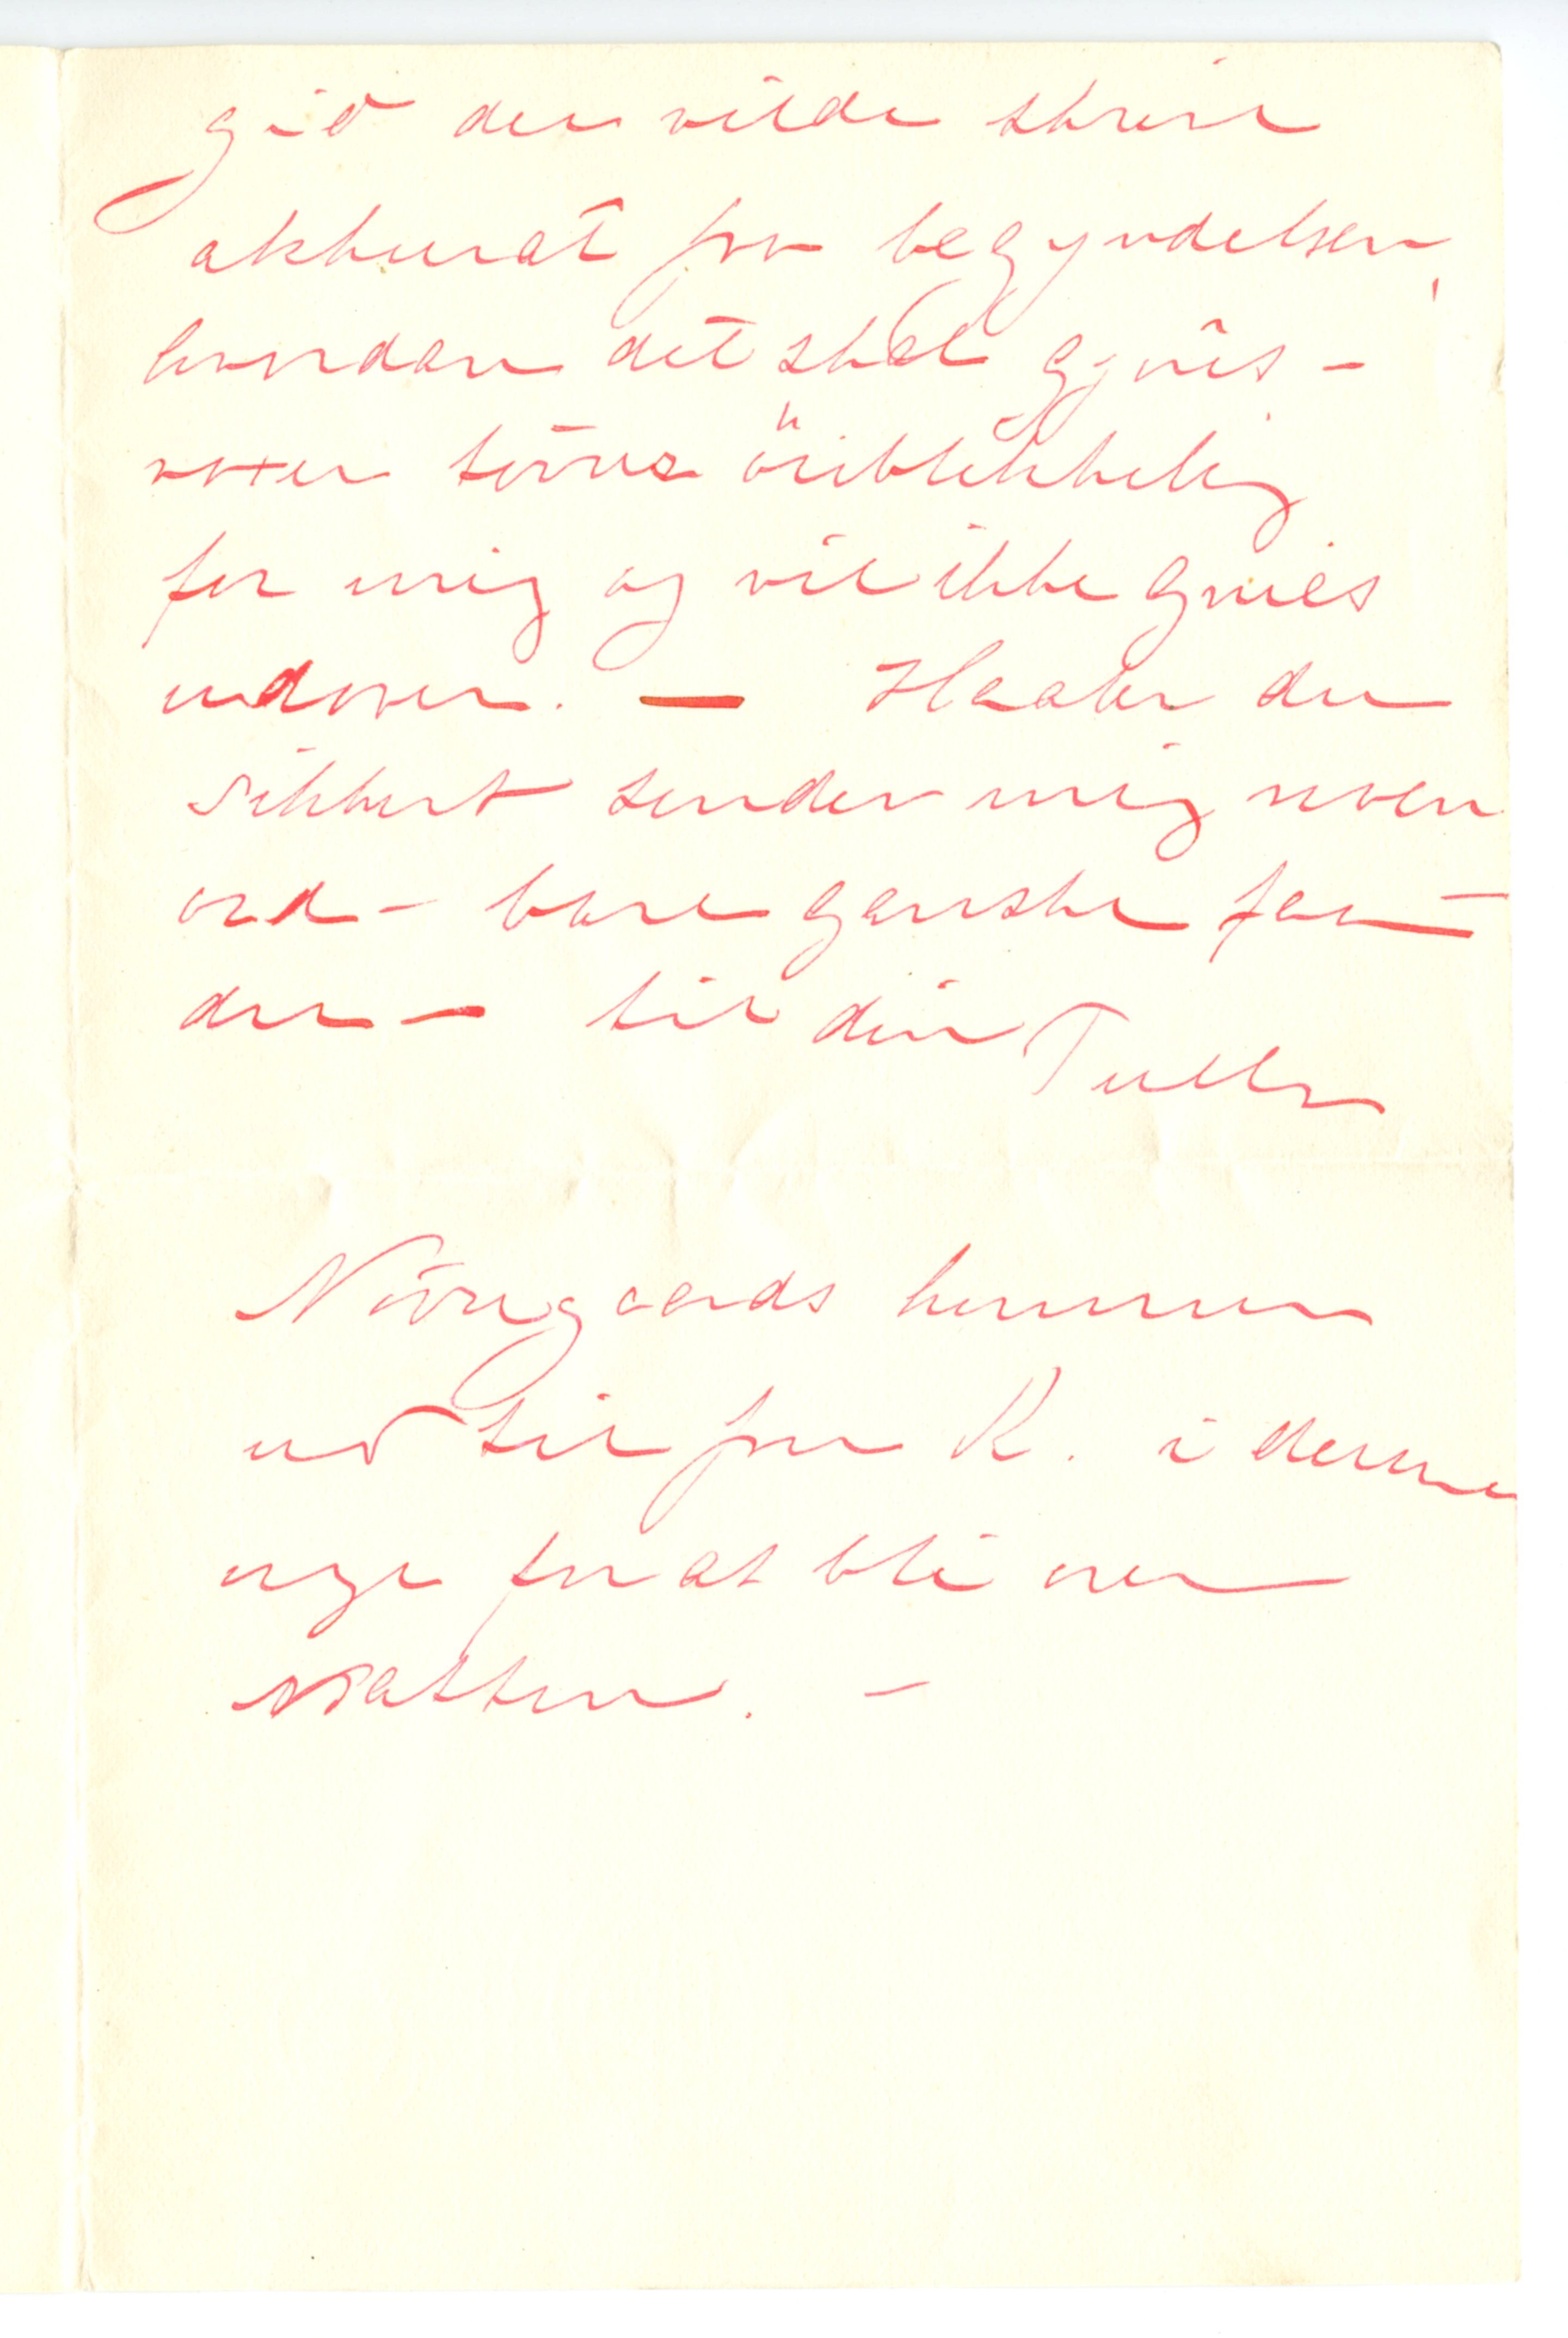 gid du vilde skrive
akkurat fra begyndelsen,
hvordan det skal gjøres –
voxer törner öieblikkelig
for mig og vil ikke gnies
udover. – Haaber du
sikkert sender mig noen
ord – bare ganske faa –
du – til din Tulla
Nörregaards kommer
ud til fru K. i denne
uge for at bli over
natten. –